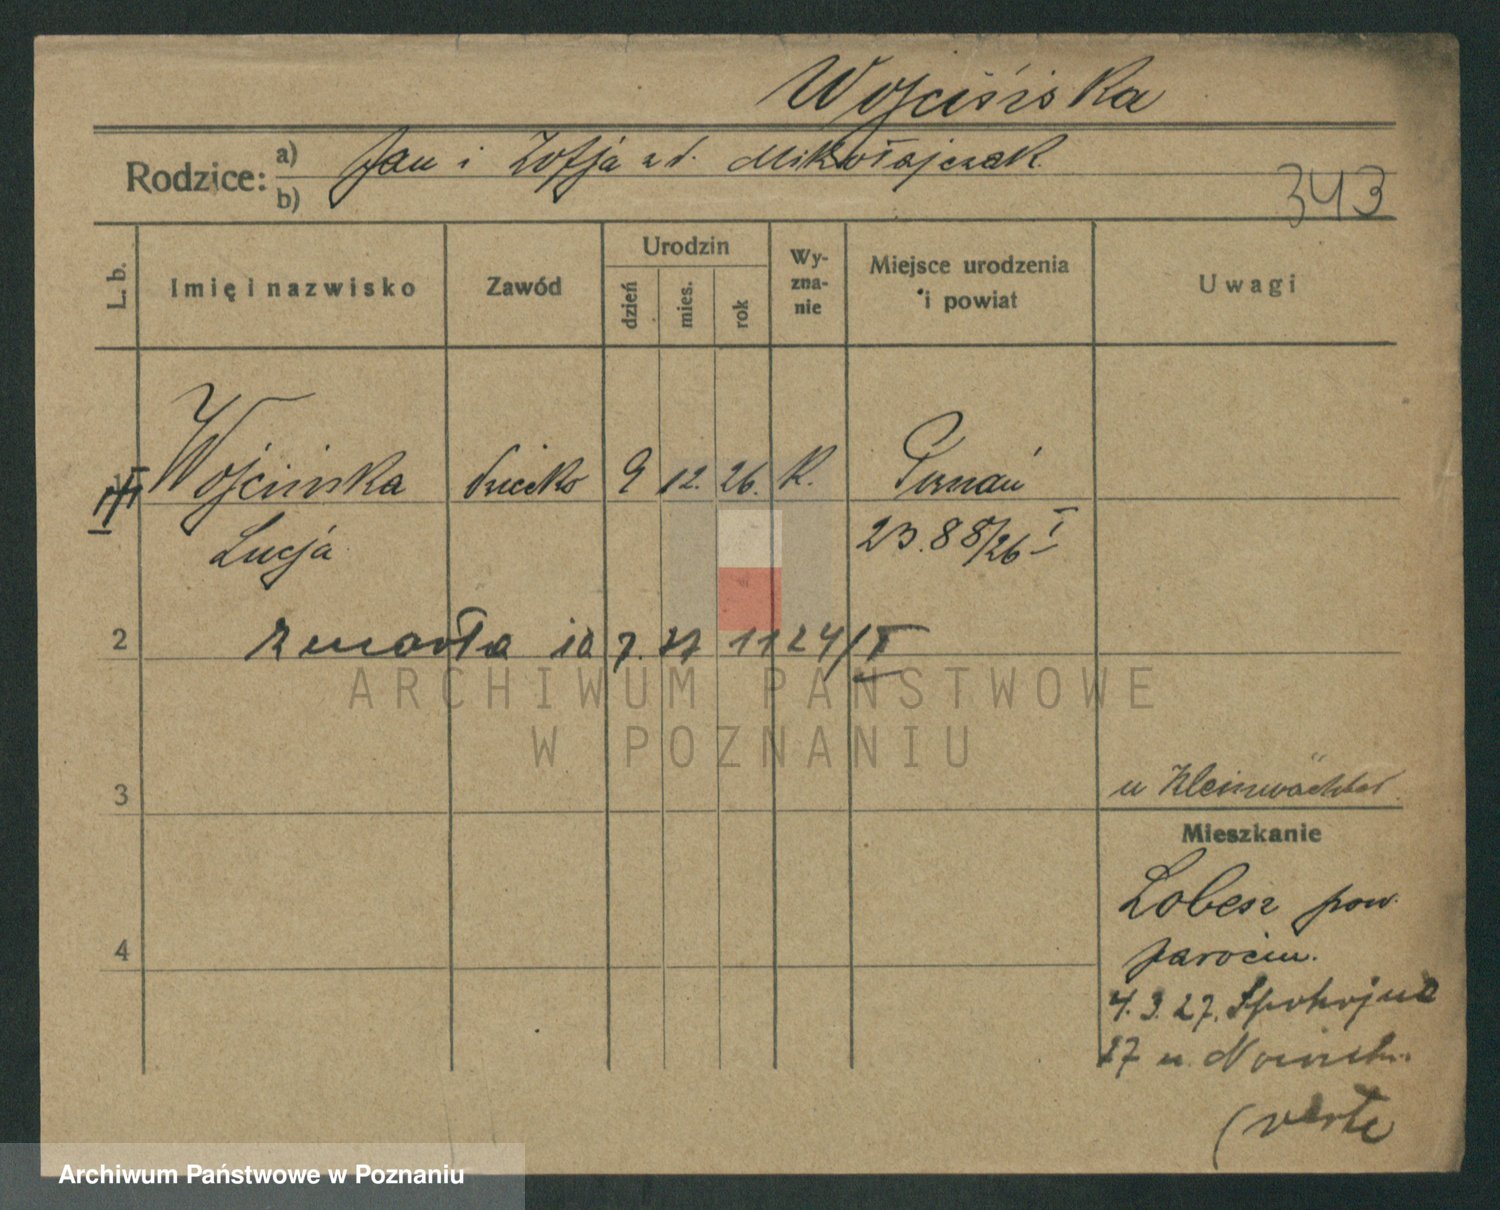 Wojcińska
Rodzice:
a) Jan i Zofja z d. Mikołajczak
b)
343
L. b.
Imię i nazwisko
Zawód
Urodzin
dzień
mies.
rok
Wy-
zna-
nie
Miejsce urodzenia
i powiat
Uwagi
Wojcińska dziecko 9 12. 26. K. Poznań
Lucja 23.88/26 I
2 zmarła 10 7. 27 1124/II
3
u Kleinwächter
Mieszkanie
Lobesz pow.
Jarocin.
4
4.3.27. Spokojna
17 u.
(verte
ARCHIWUM PAŃSTWOWE
W POZNANIU
Archiwum Państwowe w Poznaniu